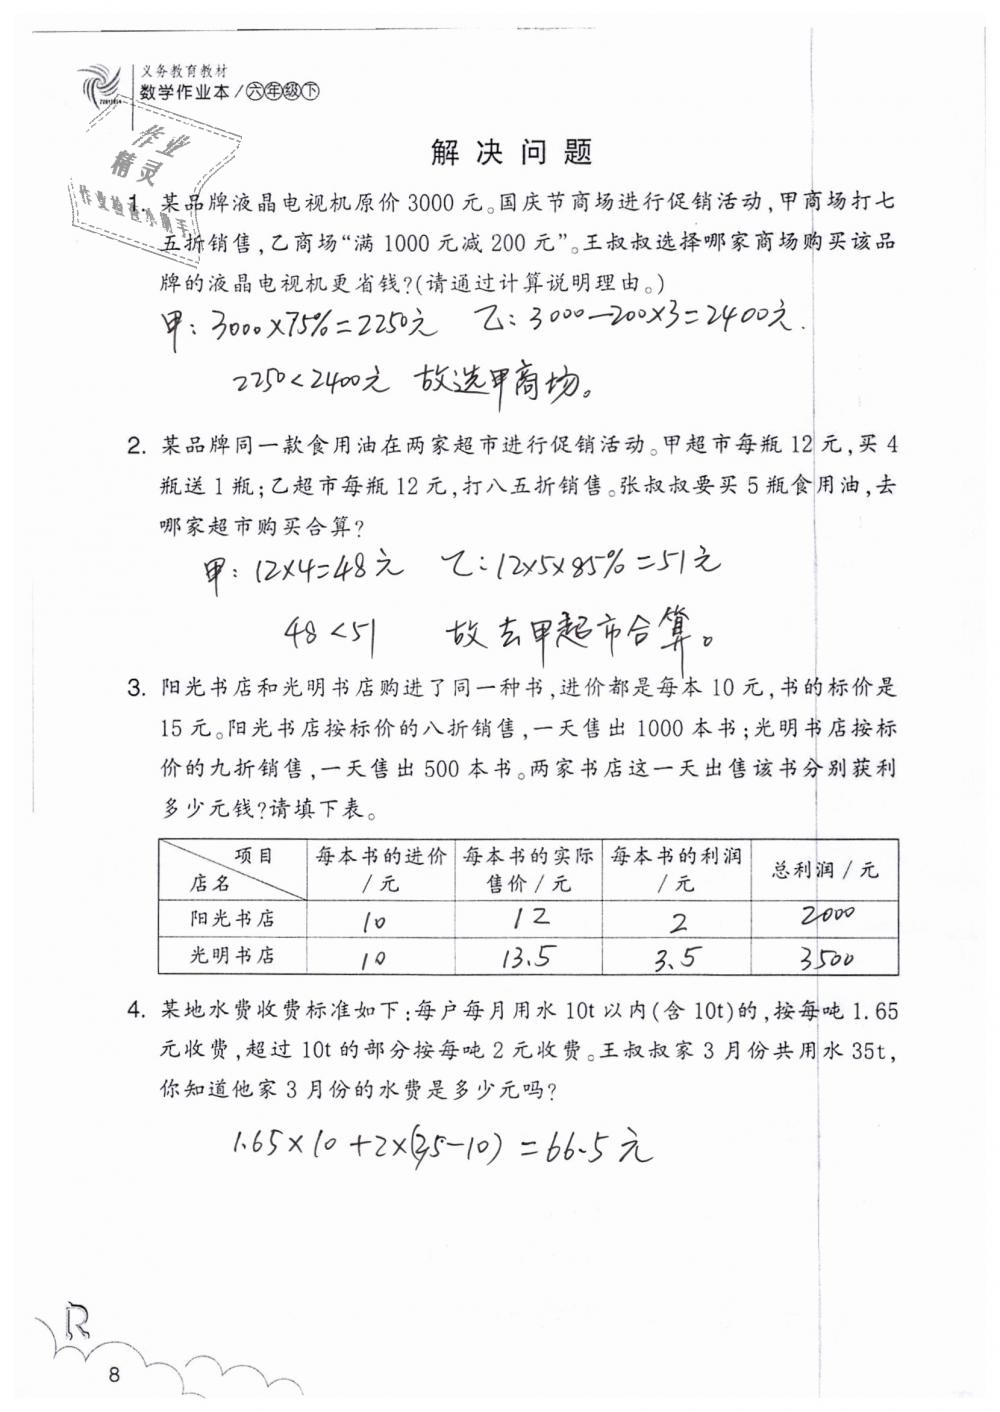 义务教育教材
数学作业本/六年级下
作业
精灵
作业检查小助手
解决问题
1. 某品牌液晶电视机原价 3000 元。国庆节商场进行促销活动,甲商场打七
五折销售,乙商场“满 1000 元减 200 元”。王叔叔选择哪家商场购买该品
牌的液晶电视机更省钱?(请通过计算说明理由。)
甲:3000×75%=2250元 乙:3000-200×3=2400元.
2250<2400元 故选甲商场。
2. 某品牌同一款食用油在两家超市进行促销活动。甲超市每瓶 12 元,买 4
瓶送 1 瓶;乙超市每瓶 12 元,打八五折销售。张叔叔要买 5 瓶食用油,去
哪家超市购买合算?
甲:12×4=48元 乙:12×5×85%=51元
48<51 故去甲超市合算。
3. 阳光书店和光明书店购进了同一种书,进价都是每本 10 元,书的标价是
15 元。阳光书店按标价的八折销售,一天售出 1000 本书;光明书店按标
价的九折销售,一天售出 500 本书。两家书店这一天出售该书分别获利
多少元钱?请填下表。
项目 店名 每本书的进价/元 每本书的实际售价/元 每本书的利润/元 总利润/元
阳光书店 10 12 2 2000
光明书店 10 13.5 3.5 3500
4. 某地水费收费标准如下:每户每月用水 10t 以内(含 10t)的,按每吨 1.65
元收费,超过 10t 的部分按每吨 2 元收费。王叔叔家 3 月份共用水 35t,
你知道他家 3 月份的水费是多少元吗?
1.65×10+2×(35-10)=66.5元
R
8